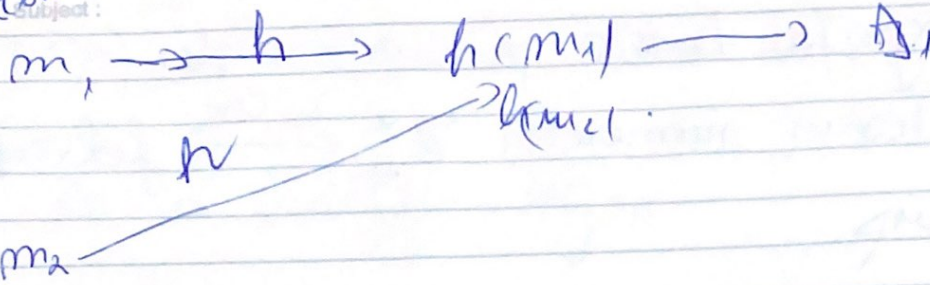 Subject :
m₁ → h → h(m₁) → 
h(m₂)
h
m₂